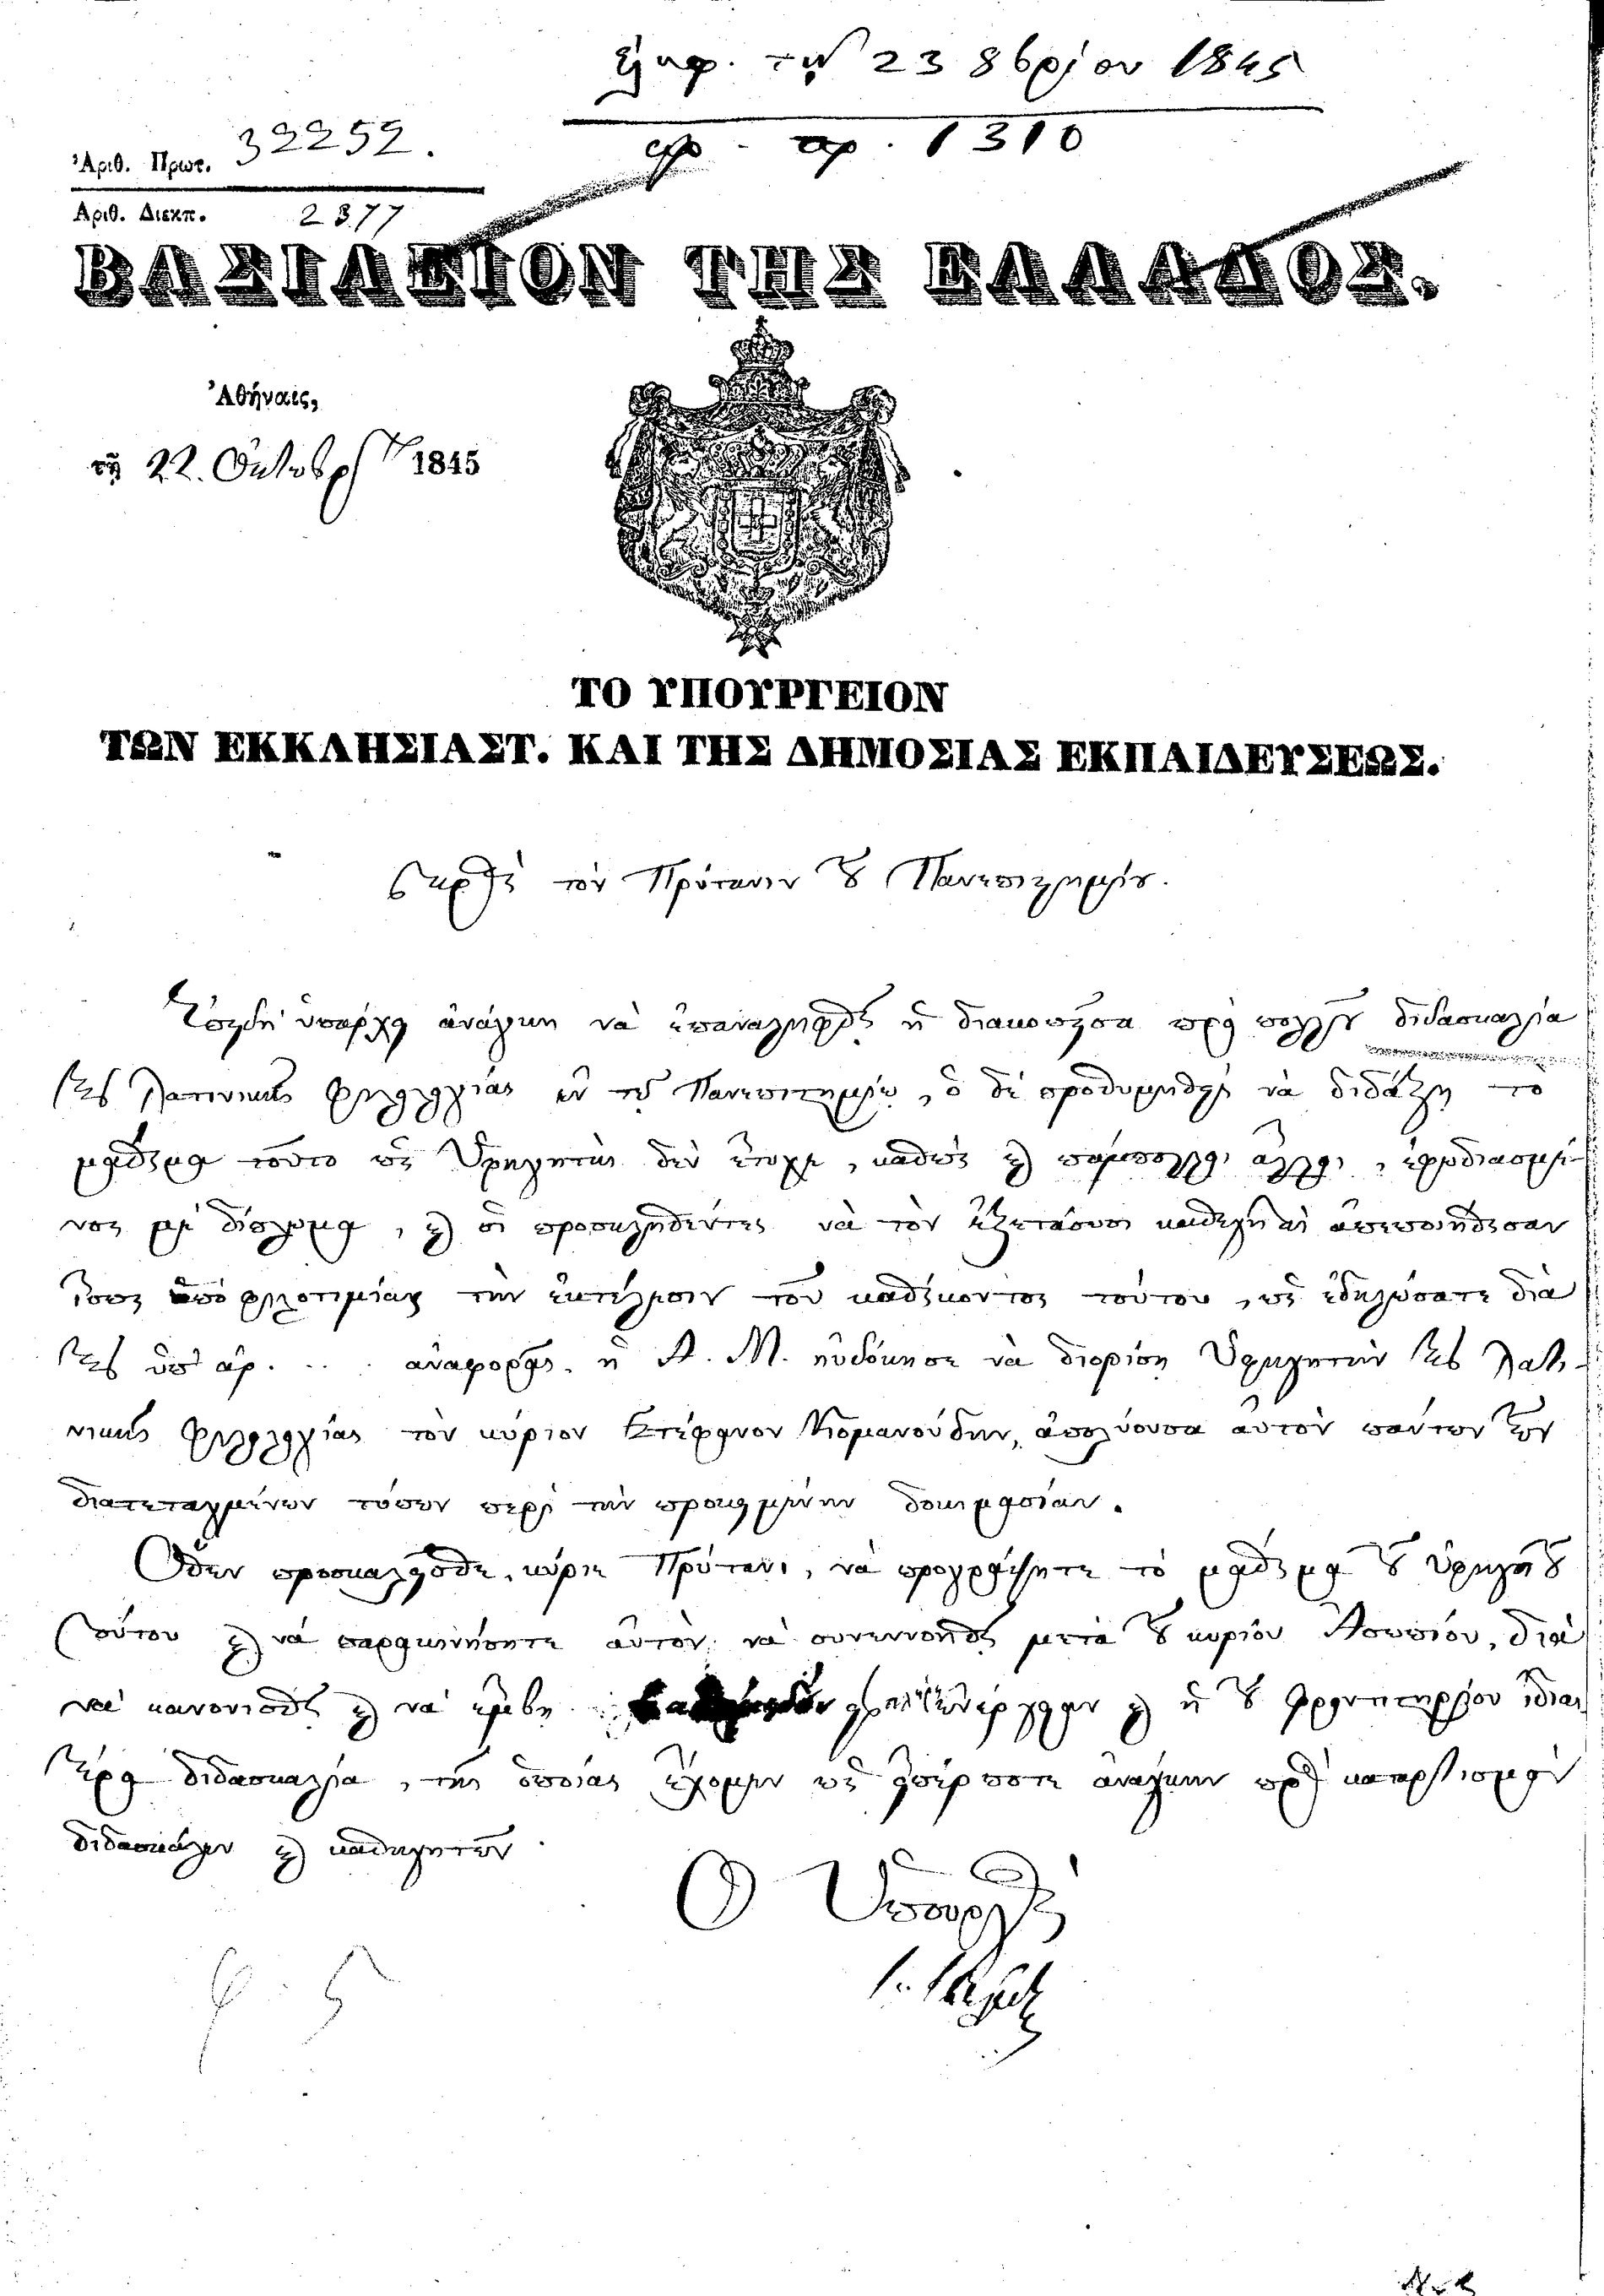 ἐλήφ. τῇ 23 8βρίου 1845
ἀρ. 1310
Ἀριθ. Πρωτ. 32252.
Ἀριθ. Διεκπ. 2377
ΒΑΣΙΛΕΙΟΝ ΤΗΣ ΕΛΛΑΔΟΣ.
Ἀθήναις,
τῇ 22. Ὀκτωβρ 1845
ΤΟ ΥΠΟΥΡΓΕΙΟΝ
ΤΩΝ ΕΚΚΛΗΣΙΑΣΤ. ΚΑΙ ΤΗΣ ΔΗΜΟΣΙΑΣ ΕΚΠΑΙΔΕΥΣΕΩΣ.
πρὸς τὸν Πρύτανιν τοῦ Πανεπιστημίου.
Ἐπειδὴ ὑπάρχει ἀνάγκη νὰ ἐπαναληφθῇ ἡ διακοπεῖσα πρὸ πολλοῦ διδασκαλία
τῆς Λατινικῆς φιλολογίας ἐν τῷ Πανεπιστημίῳ, ὁ δὲ προθυμηθεὶς νὰ διδάξῃ τὸ
μάθημα τοῦτο ὡς Ὑφηγητὴς δὲν ἔτυχε, καθὼς καὶ πάμπολλοι ἄλλοι, ἐφωδιασμέ-
νος μὲ δίπλωμα, καὶ οἱ προσκληθέντες νὰ τὸν ἐξετάσουσι καθηγηταὶ ἀπεποιήθησαν
ἴσως ἀπὸ φιλοτιμίας τὴν ἐκπλήρωσιν τοῦ καθήκοντος τούτου, ὡς ἐδηλώσατε διὰ
τῆς ὑπ' ἀρ. . . . ἀναφορᾶς, ἡ Α. Μ. ηὐδόκησε νὰ διορίσῃ Ὑφηγητὴν τῆς Λατι-
νικῆς φιλολογίας τὸν κύριον Στέφανον Κομανούδην, ἀπολύουσα αὐτὸν πάντων τῶν
διατεταγμένων τύπων περὶ τὴν δοκιμασίαν.
Ὅθεν προσκαλεῖσθε, κύριε Πρύτανι, νὰ προγράψητε τὸ μάθημα τοῦ Ὑφηγητοῦ
τούτου καὶ νὰ παρακινήσητε αὐτὸν νὰ συνεννοηθῇ μετὰ τοῦ κυρίου Ἀσωπίου, διὰ
νὰ κανονισθῇ καὶ νὰ ἔμβῃ ἐνέργειαν καὶ ἡ τοῦ φροντιστηρίου ἰδιαι-
τέρα διδασκαλία, τῆς ὁποίας ἔχομεν ὡς ἀνάγκην πρὸς καταρτισμὸν
διδασκάλων καὶ καθηγητῶν
Ὁ Ὑπουργὸς